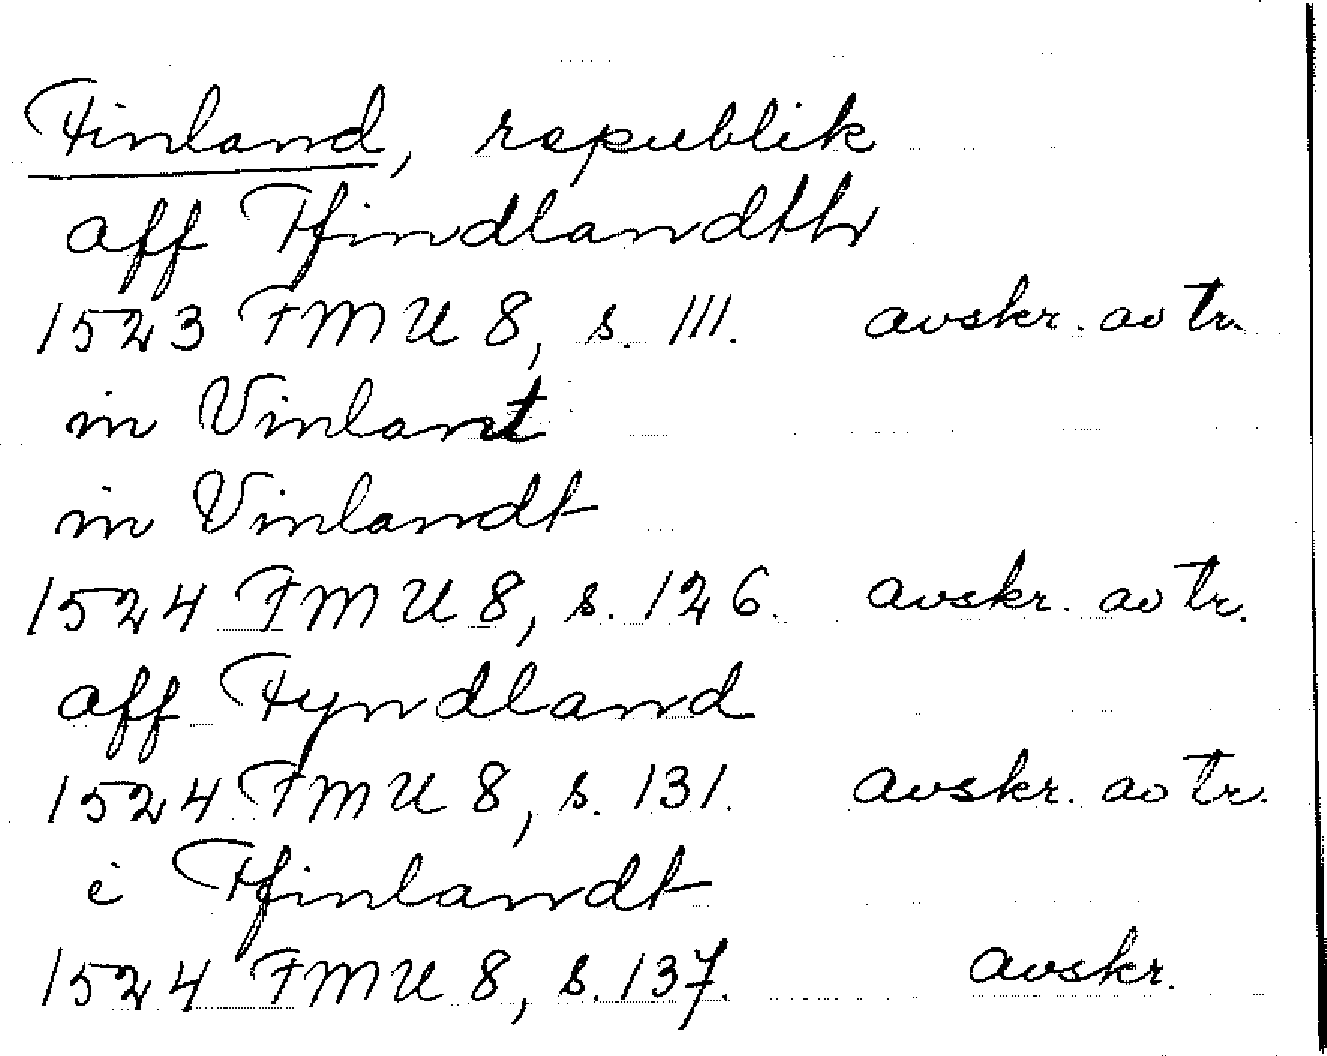 Finland, republik
aff Ffindlandth
1523 FMU 8, s. 111. avskr. av tr.
in Vinlant
in Vinlandt
1524 FMU 8, s. 126. avskr. av tr.
aff Fyndland
1524 FMU 8, s. 131. avskr. av tr.
i Ffinlandt
1524 FMU 8, s. 137. avskr.